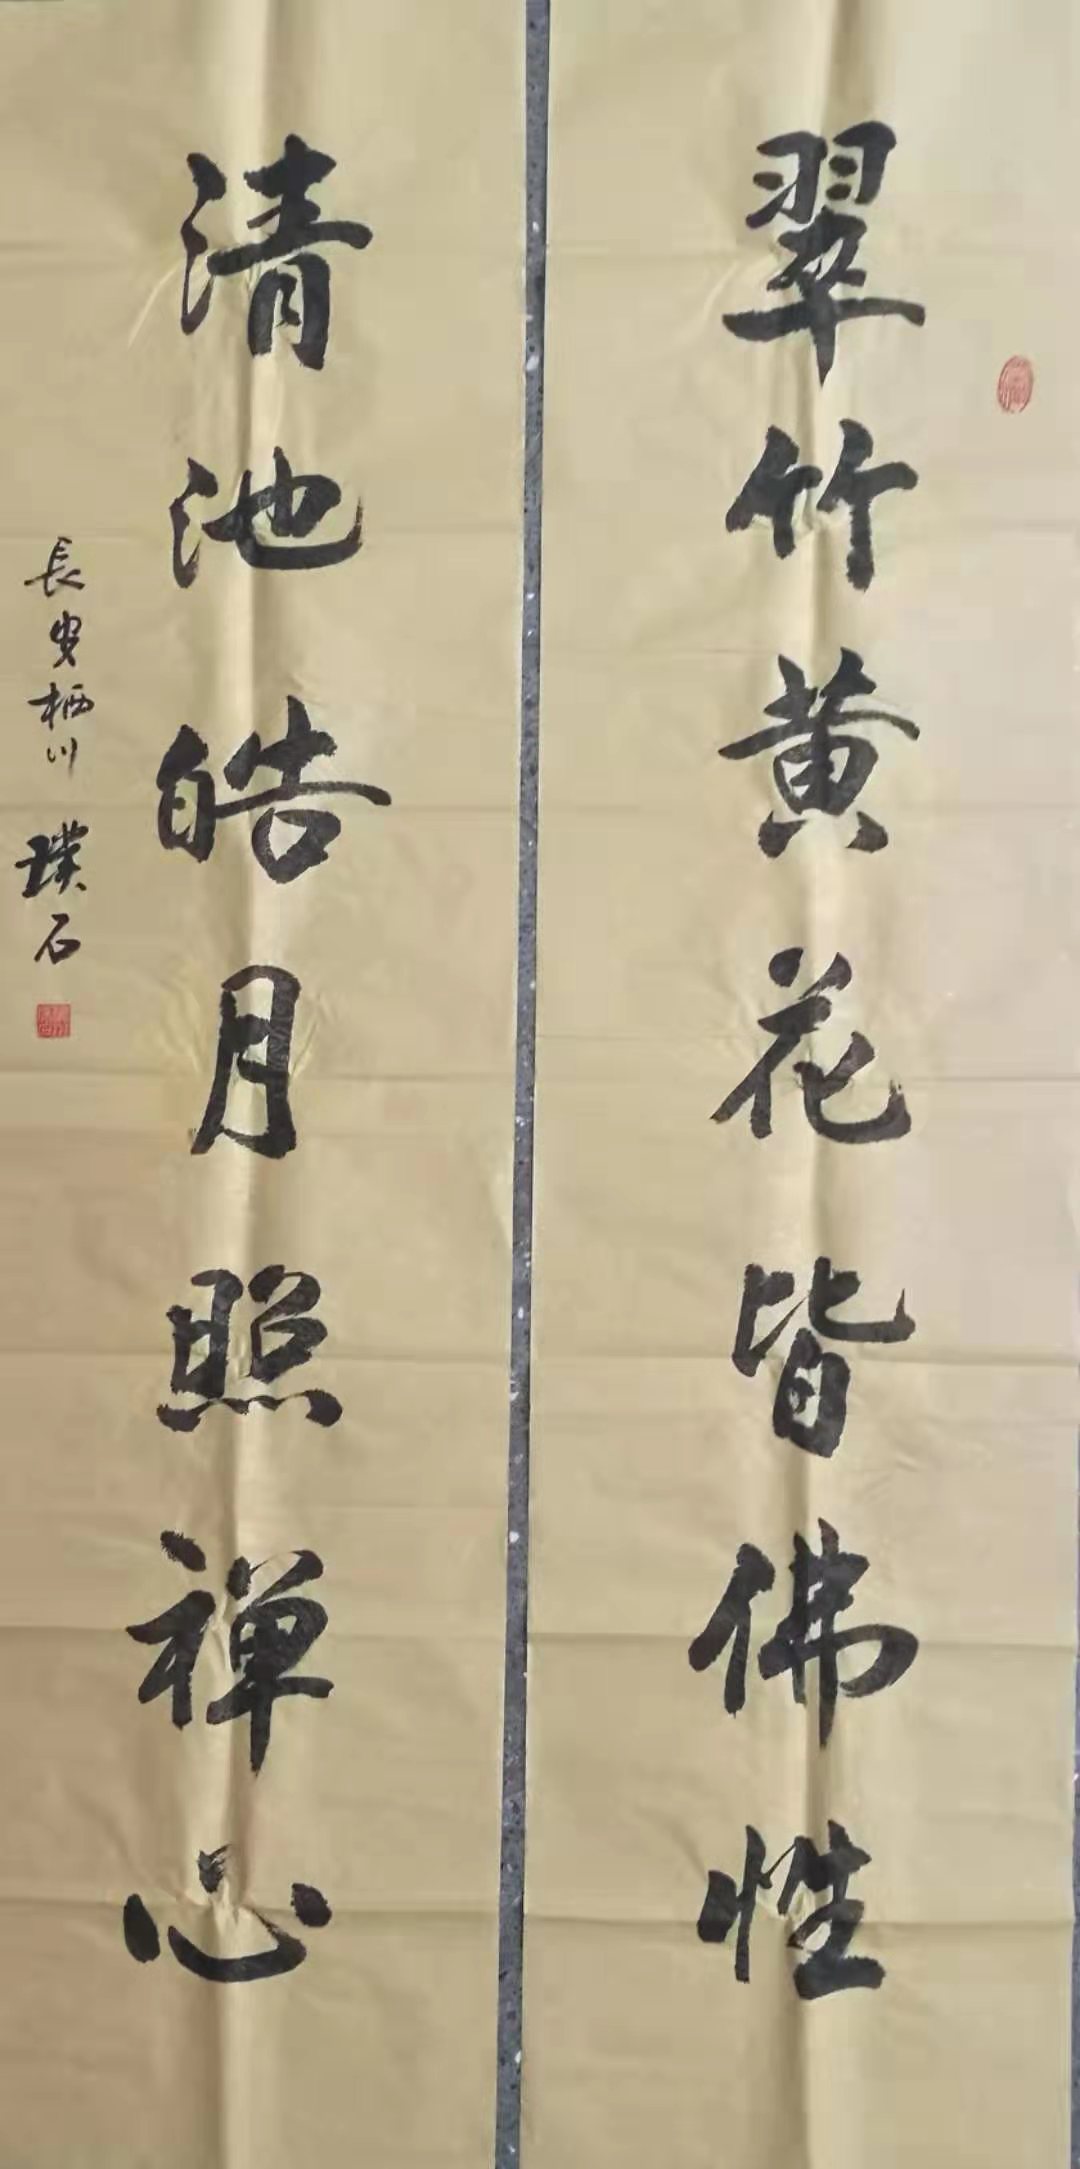 翠竹黄花皆佛性
清池皓月照禅心
長安栖川 璞石